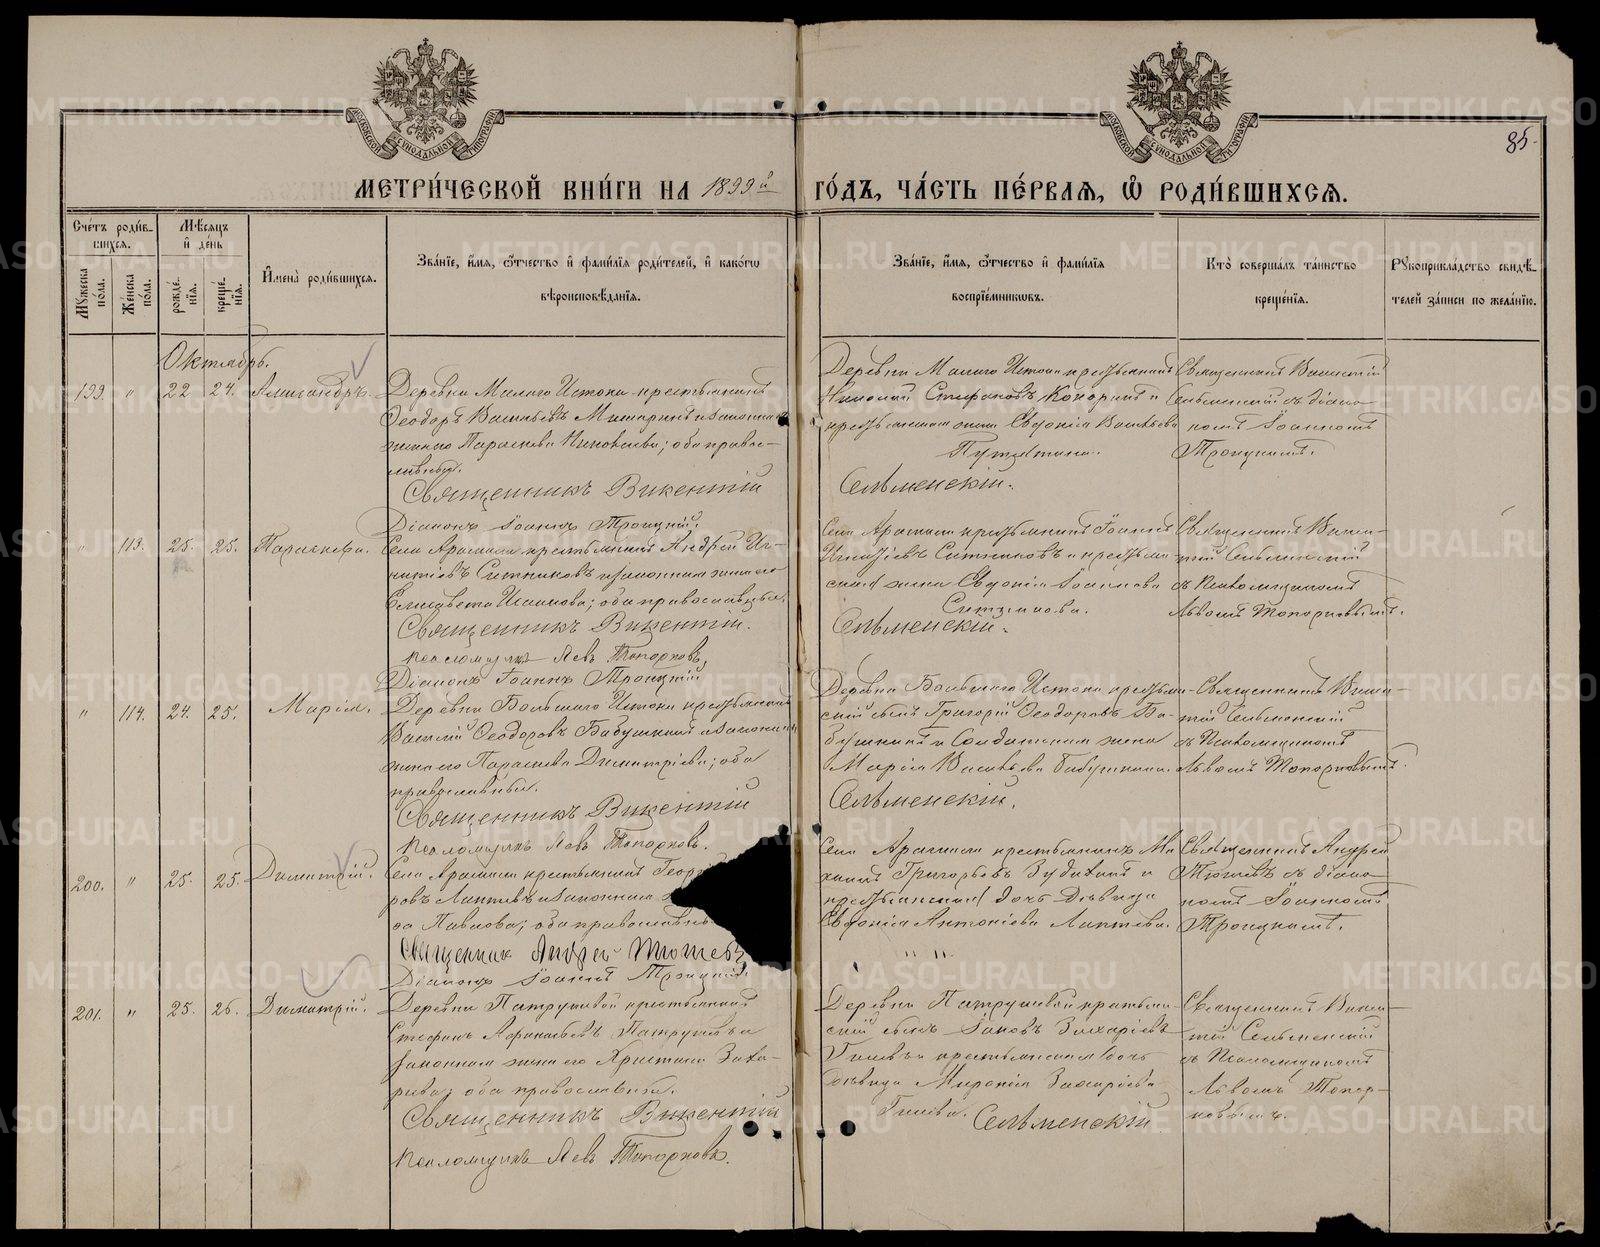 85.
МЕТРИ́ЧЕСКОЙ КНИ́ГИ НА 1899й ГО́ДЪ, ЧА́СТЬ ПЕ́РВАЯ, Ѡ РОДИ́ВШИХСЯ.
Сче́тъ роди́вшихся.
Му́жеска по́ла.
Же́нска по́ла.
Мѣ́сяцъ и де́нь
рожде́нїя.
креще́нїя.
И́мена роди́вшихся.
Зва́нїе, и́мя, ѻ́тчество и фами́лїя роди́телей, и како́гѡ
вѣроисповѣ́данїя.
Зва́нїе, и́мя, ѻ́тчество и фами́лїя
воспрїе́мниковъ.
Кто̀ соверша́лъ та́инство
креще́нїя.
Рукоприкла́дство свидѣ́-
телей за́писи по жела́нїю.
Октябрь.
199. " 22 24. Александръ.
Деревни Малаго Истока крестьянинъ
Ѳеодоръ Васильевъ и законная
жена его Параскева; оба православные.
Священникъ Викентій Сельменскій.
Діаконъ Іоаннъ Троицкій.
Деревни Малаго Истока крестьянинъ
Николай Стефановъ и
крестьянская жена Евдокія Васильева
Священникъ Викентій
Сельменскій съ діако-
номъ Іоанномъ
Троицкимъ.
" 113. 25. 25. Параскева.
Села Арамили крестьянинъ Андрей Иг-
натіевъ Ситниковъ и законная жена его
Елисавета; оба православные.
Священникъ Викентій Сельменскій.
Псаломщикъ Левъ Топорковъ.
Діаконъ Іоаннъ Троицкій
Села Арамили крестьянинъ Іоаннъ
Игнатіевъ Ситниковъ и крестьян-
ская жена Евдокія Іоаннова
Ситникова.
Священникъ Викен-
тій Сельменскій
съ псаломщикомъ
Львомъ Топорковымъ.
" 114. 24. 25. Марія.
Деревни Большаго Истока крестьянинъ
Василій Ѳеодоровъ Бабушкинъ и законная
жена его Параскева Димитріева; оба
православные.
Священникъ Викентій Сельменскій.
Псаломщикъ Левъ Топорковъ.
Деревни Большаго Истока крестьян-
скій сынъ Григорій Ѳеодоровъ Ба-
бушкинъ и солдатская жена
Марія Васильева Бабушкина.
Священникъ Викен-
тій Сельменскій
съ псаломщикомъ
Львомъ Топорковымъ.
200. " 25. 25. Димитрій.
Села Арамили крестьянинъ Геор
ровъ Лаптевъ и законная
Павлова; оба православные
Священник Андрей Тюшевъ
Діаконъ Іоаннъ Троицкій.
Села Арамили крестьянинъ Ми-
хаилъ Григорьевъ и
крестьянская дочь дѣвица
Евдокія Антоніева Лаптева.
Священникъ Андрей
Тюшевъ съ діако-
номъ Іоанномъ
Троицкимъ.
201. " 25. 26. Димитрій.
Деревни Патрушевой крестьянинъ
Стефанъ Аѳанасьевъ Патрушевъ и
законная жена его Христина Заха-
рова; оба православные.
Священникъ Викентій Сельменскій
Псаломщикъ Левъ Топорковъ.
Деревни Патрушевой крестьян-
скій сынъ Іаковъ Захаріевъ
Гилевъ и крестьянская дочь
дѣвица Миронія Захаріева
Гилева.
Священникъ Викен-
тій Сельменскій
съ псаломщикомъ
Львомъ Топор-
ковымъ.
METRIKI.GASO-URAL.RU